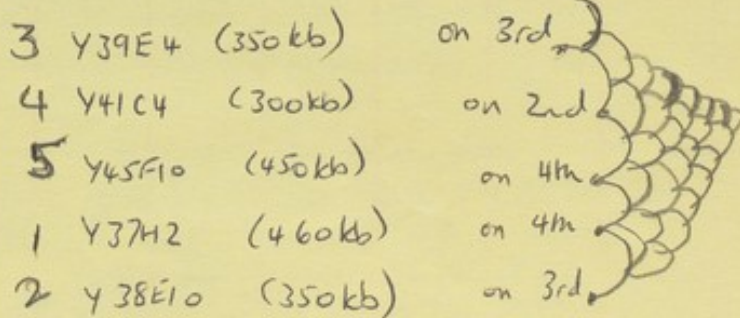 3 Y39E4 (350kb) on 3rd
4 Y41C4 (300kb) on 2nd
5 Y45F10 (450kb) on 4th
1 Y37H2 (460kb) on 4th
2 Y38E10 (350kb) on 3rd